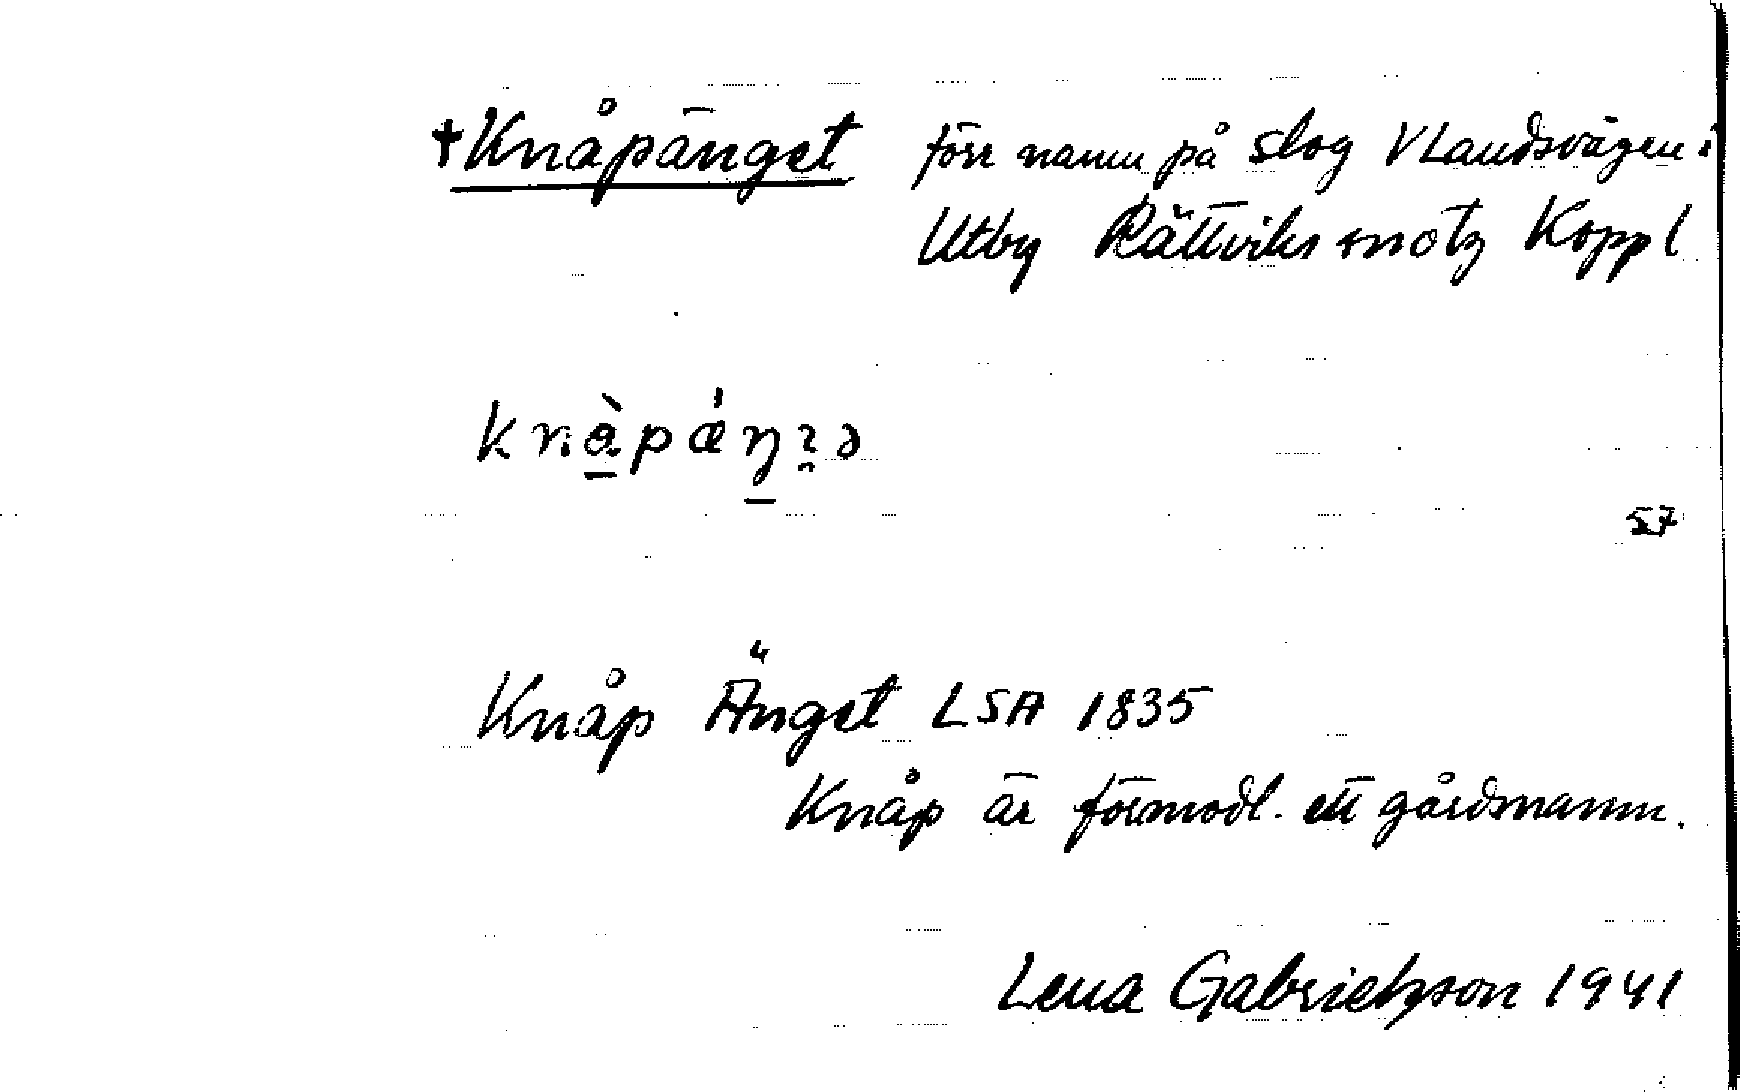 †Knåpänget förr namn på slog V Landsvägen i
Utby Rättviks snötz Koppl
knàpǽŋɿə
57
Knåp Änget LSA 1835
Knåp är förmodl. ett gårdsnamn.
Lena Gabrielsson 1941